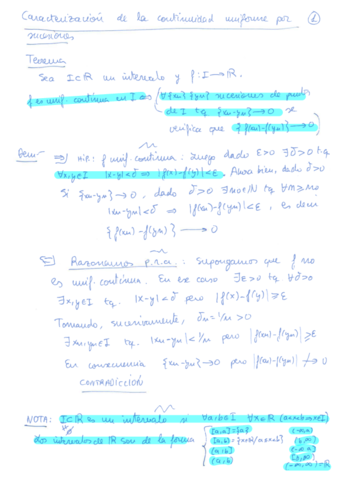 Caracterización de la continuidad uniforme por ①
sucesiones
Teorema
Sea I⊂ℝ un intervalo y f: I → ℝ.
f es unif. continua en I ⇔ (∀{xn} {yn} sucesiones de puntos
de I tq {xn-yn} → 0 se
verifica que {f(xn)-f(yn)} → 0)
Dem: ⇒) hip: f unif. continua: luego dado ε>0 ∃δ>0 tq
∀x,y∈I |x-y|<δ ⇒ |f(x)-f(y)|<ε. Ahora bien, dado δ>0
Si {xn-yn} → 0, dado δ>0 ∃n0∈ℕ tq ∀n≥n0
|xn-yn|<δ ⇒ |f(xn)-f(yn)|<ε, es decir
{f(xn)-f(yn)} → 0
⇐) Razonamos p.r.a.: supongamos que f no
es unif. continua. En ese caso ∃ε>0 tq ∀δ>0
∃x,y∈I tq. |x-y|<δ pero |f(x)-f(y)|≥ε
Tomando, sucesivamente, δn=1/n>0
∃xn,yn∈I tq. |xn-yn|<1/n pero |f(xn)-f(yn)|≥ε
En consecuencia {xn-yn}→0 pero |f(xn)-f(yn)| ↛ 0
CONTRADICCIÓN
NOTA: I⊂ℝ es un intervalo si ∀a,b∈I ∀x∈ℝ (a<x<b ⇒ x∈I)
Los intervalos de ℝ son de la forma
[a,a]={a}
[a,b]={x∈ℝ/a≤x≤b}
(a,b]
(a,b)
(-∞,a)
(-∞,a]
(-∞,∞)=ℝ